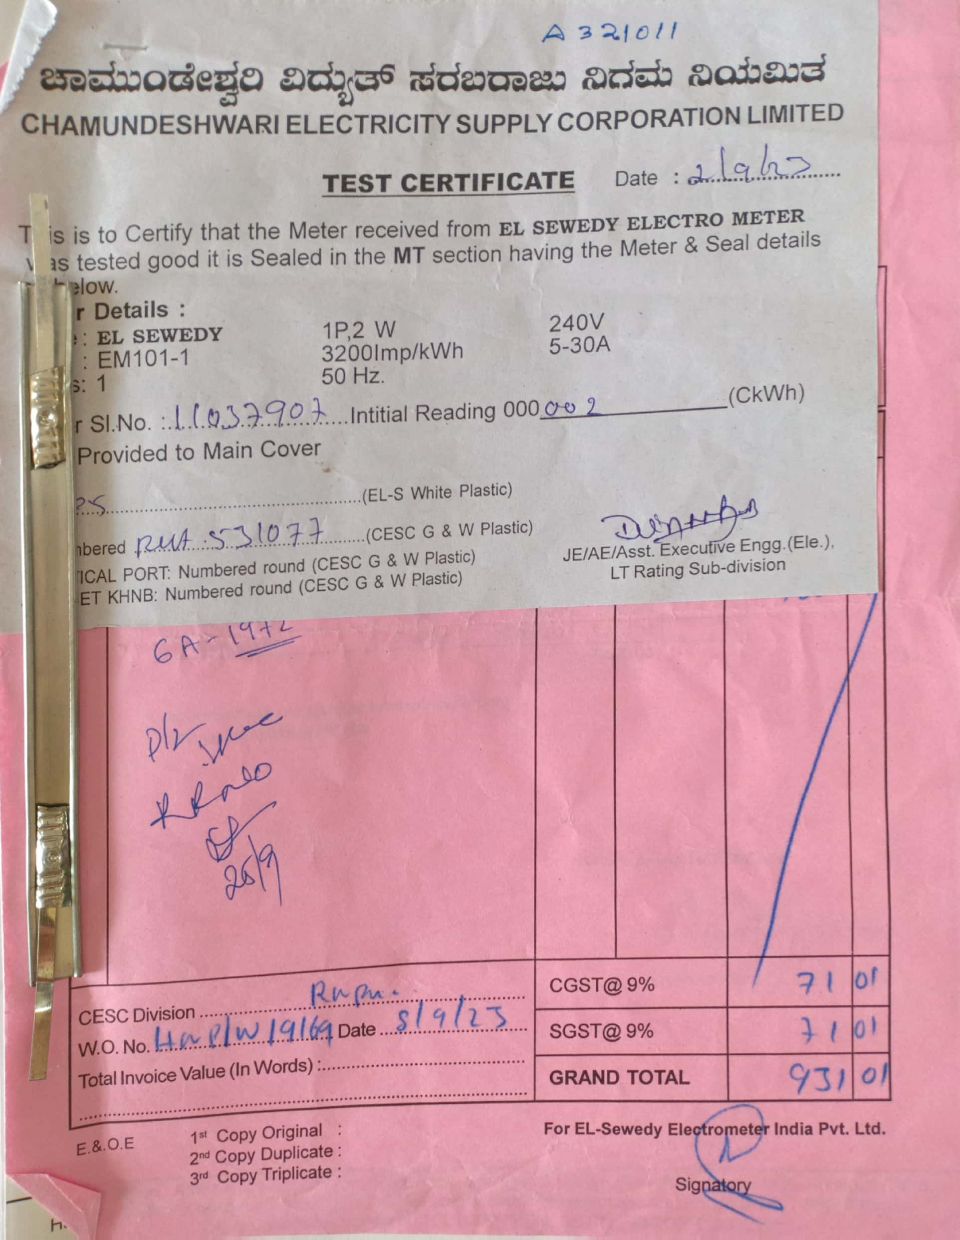 A 321011
ಚಾಮುಂಡೇಶ್ವರಿ ವಿದ್ಯುತ್ ಸರಬರಾಜು ನಿಗಮ ನಿಯಮಿತ
CHAMUNDESHWARI ELECTRICITY SUPPLY CORPORATION LIMITED
TEST CERTIFICATE Date : 2/9/23
This is to Certify that the Meter received from EL SEWEDY ELECTRO METER
was tested good it is Sealed in the MT section having the Meter & Seal details
below.
r Details :
: EL SEWEDY 1P,2 W 240V
: EM101-1 3200Imp/kWh 5-30A
s: 1 50 Hz.
r Sl.No. : 11037907 Intitial Reading 000 002 (CkWh)
Provided to Main Cover
(EL-S White Plastic)
nbered 531077 (CESC G & W Plastic)
ICAL PORT: Numbered round (CESC G & W Plastic)
ET KHNB: Numbered round (CESC G & W Plastic)
JE/AE/Asst. Executive Engg.(Ele.),
LT Rating Sub-division
GA-1972
RRNo
26/9
CESC Division
W.O. No. Date 8/9/23
Total Invoice Value (In Words) :
CGST@ 9% 71 01
SGST@ 9% 71 01
GRAND TOTAL 931 01
E.&.O.E
1st Copy Original :
2nd Copy Duplicate :
3rd Copy Triplicate :
For EL-Sewedy Electrometer India Pvt. Ltd.
Signatory